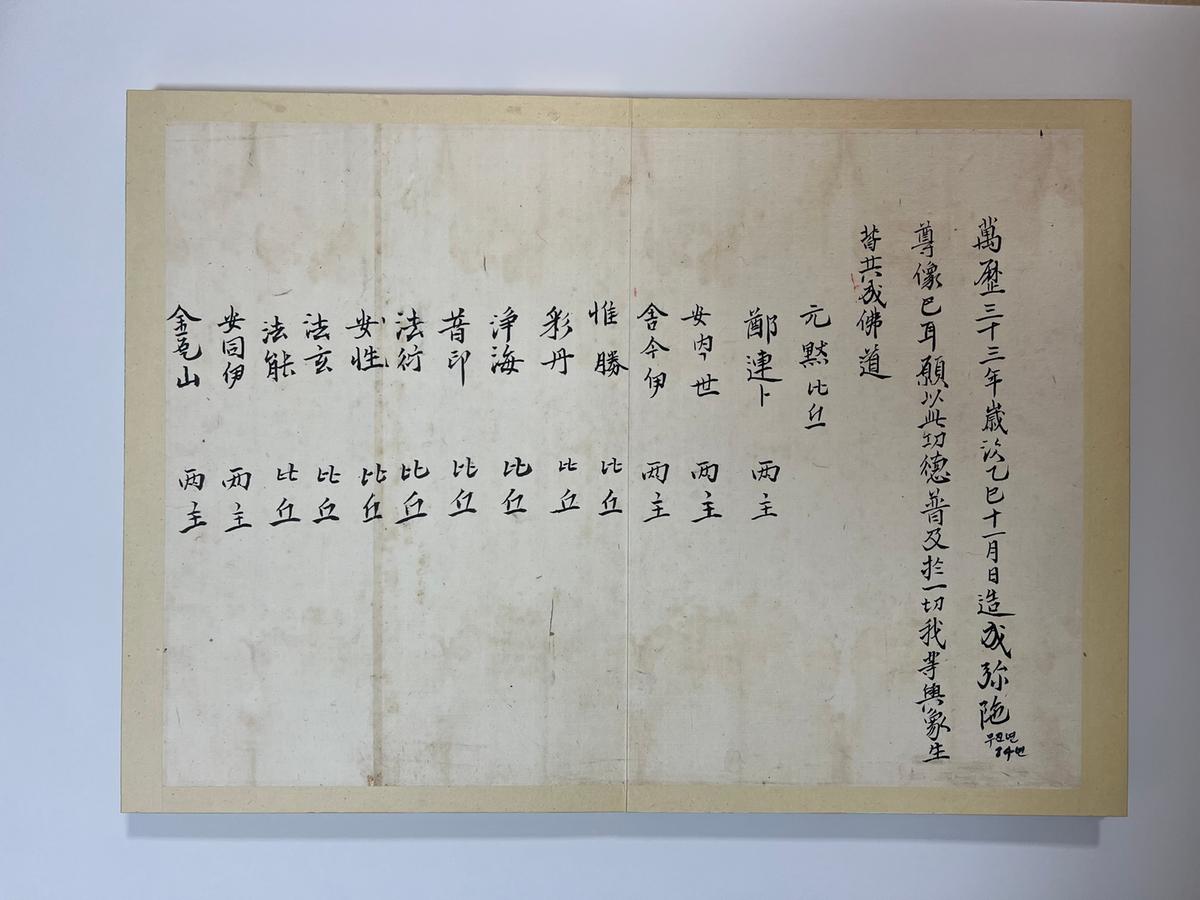 萬歷三十三年歲次乙巳十一月日造成弥陁
무진년
84년
尊像已耳願以此功德普及扵一切我等與衆生
皆共成佛道
元黙比丘
鄭連卜 两主
安内世 两主
舍今伊 两主
惟勝 比丘
彩丹 比丘
淨海 比丘
普印 比丘
法行 比丘
安性 比丘
法玄 比丘
法能 比丘
安同伊 两主
金山 两主